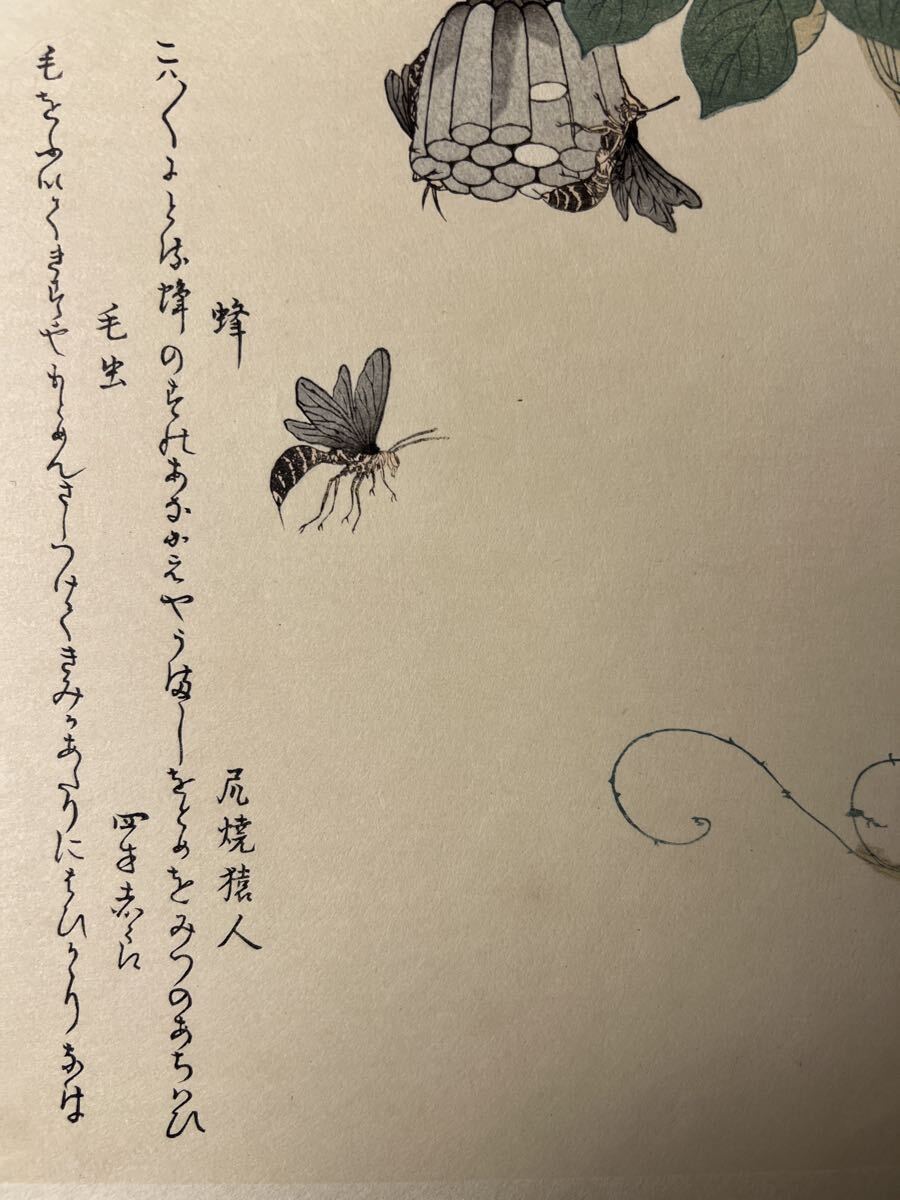 蜂
尻焼猿人
こハ〱にとる蜂のすのあなにえやうましをとめをみつのあちハひ
毛虫
四方赤良
毛をふいてきすやもとめんさしつけてきみかあたりにはひかゝりなは